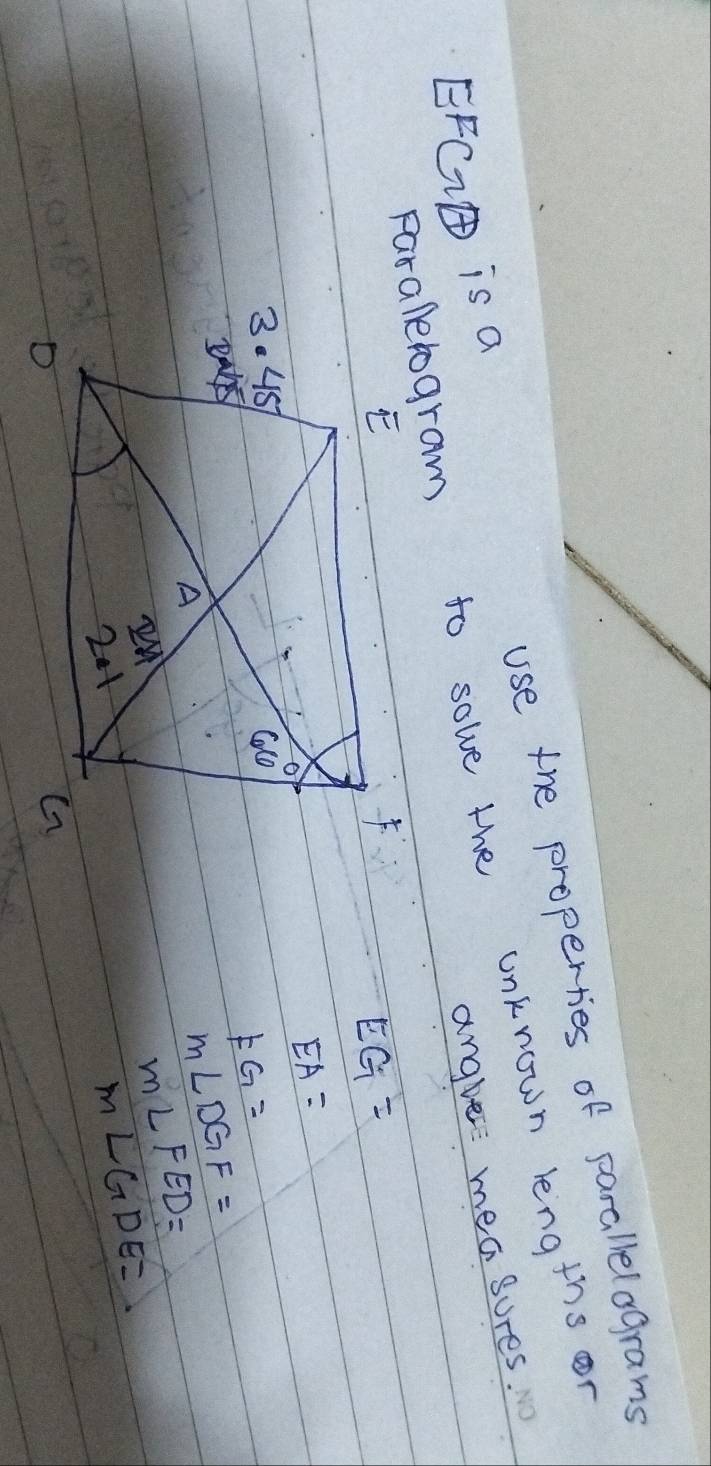 use the properties of parallelograms
EFGD is a
to solve the unknown lengths or
parallelogram
angle measures.
E
F
EG =
3.45
EA =
66°
FG =
A
m∠DGF =
2.1
m∠FED=
D
G
m∠GDE=
NO